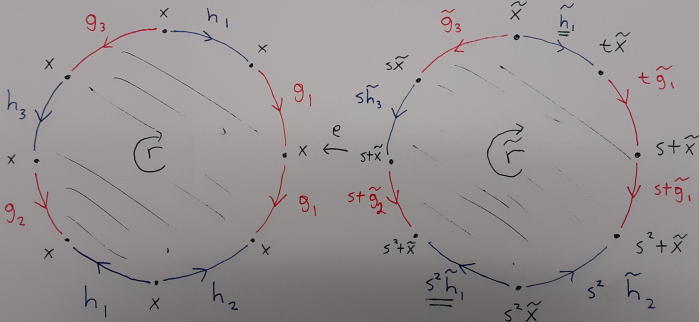 x
g₃
h₁
x
x
h₃
g₁
x
r
x
g₂
g₁
x
x
h₁
h₂
x
e
x̃
g̃₃
h̃₁
tx̃
sx̃
tg̃₁
sh̃₃
stx̃
r̃
stx̃
stg̃₂
stg̃₁
s²tx̃
s²tx̃
s²h̃₁
s² h̃₂
s²x̃